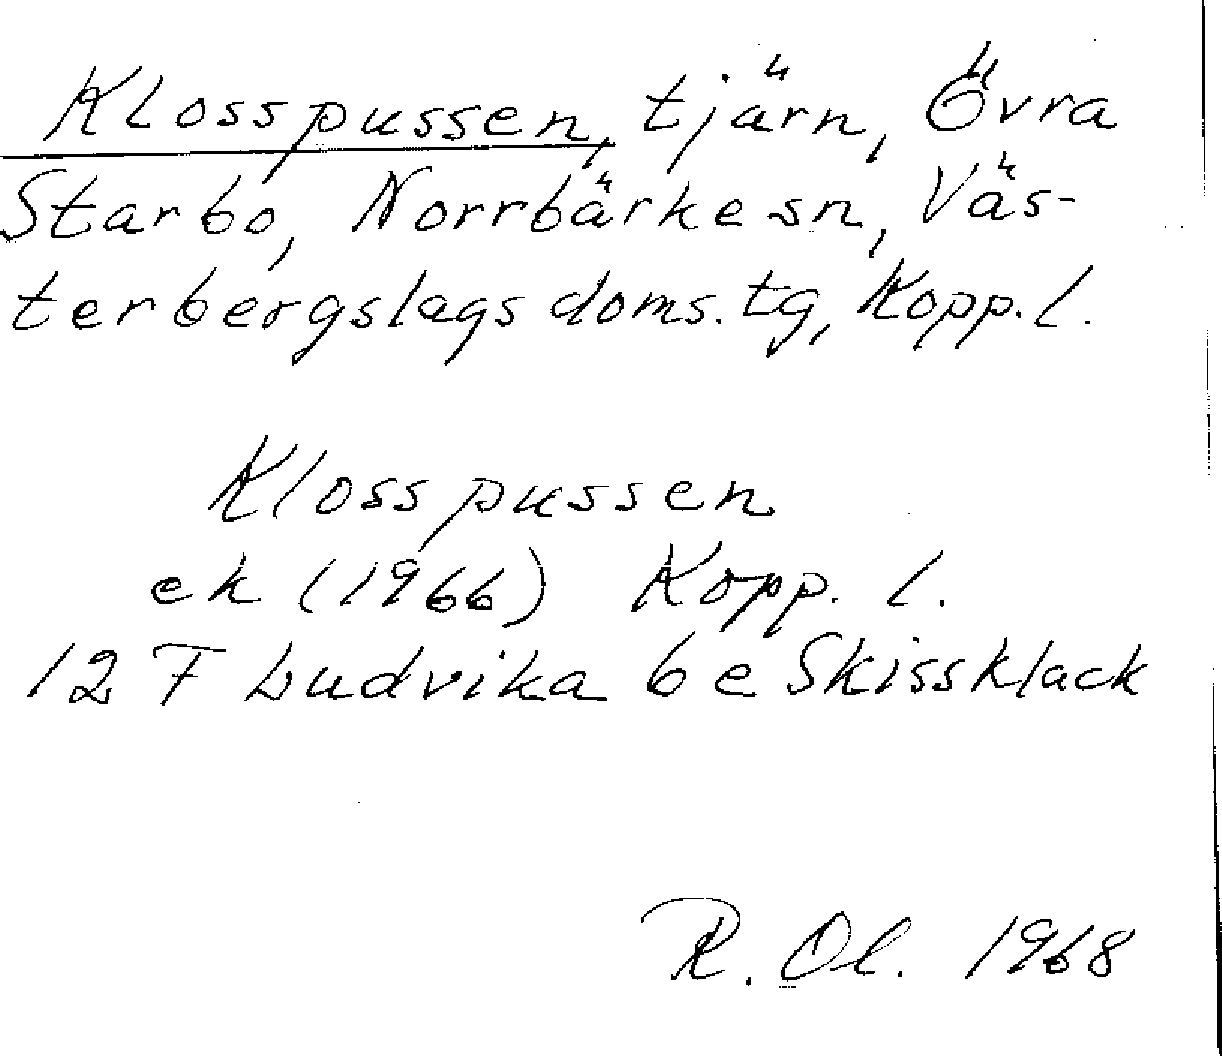 Klosspussen, tjärn, Övra
Starbo, Norrbärke sn, Väs-
terbergslags doms. tg, Kopp. l.
Klosspussen
ek (1966) Kopp. l.
12 F Ludvika 6 e Skissklack
R. Ol. 1968